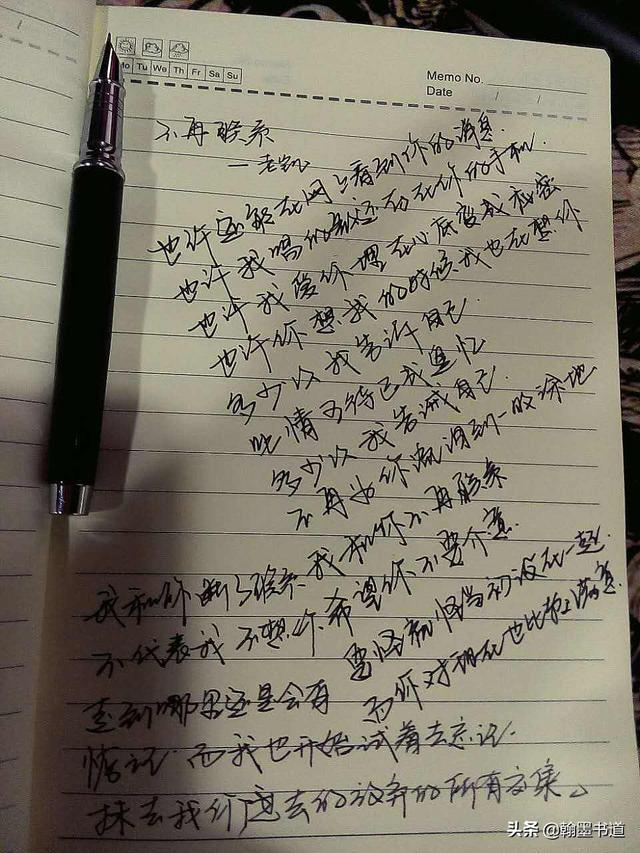 Mo Tu We Th Fr Sa Su
Memo No.
Date / /
不再联系
—老凯
也许还能在网上看到你的消息
也许我唱的歌还存在你的手机
也许我爱你埋在心底变成秘密
也许你想我的时候我也在想你
多少次我告诉自己
此情可待已成追忆
多少次我告诫自己
不再为你流泪到一败涂地
我和你不再联系
希望你不要介意
要怪就怪当初没在一起
而你对现在也比较满意
我和你断了联系
不代表我不想你
走到哪里还是会有
惦记 而我也开始试着去忘记
抹去我们过去的放弃的所有交集。
头条 @翰墨书道